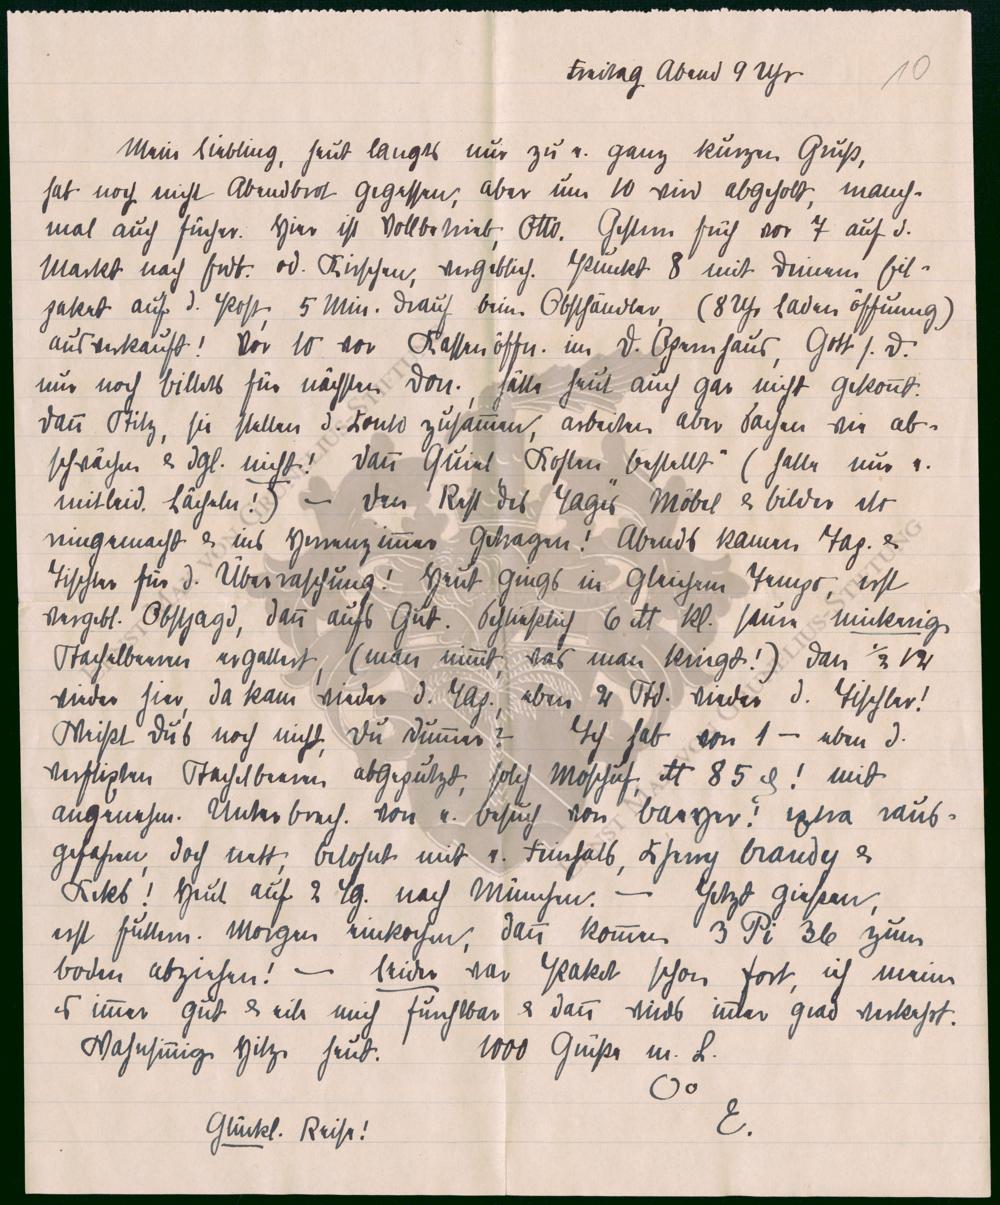 Freitag Abend 9 Uhr 10
Mein Liebling, heut langts nur zu e. ganz kurzen Gruß,
hab noch nicht Abendbrot gegessen, aber um 10 wird abgeholt, manch-
mal auch früher. Hier ist Vollbetrieb, Otto. Gestern früh vor 7 auf d.
Markt nach Erdb. od. Kirschen, vergeblich. Punkt 8 mit Deinem Eil-
paket auf d. Post, 5 Min. drauf beim Obsthändler, (8 Uhr Ladenöffnung)
ausverkauft! Vor 10 vor Kassenöffn. im D. Opernhaus, Gott s. D.
nur noch Billets für nächsten Don., hätte heut auch gar nicht gekonnt.
Dann Ritz, sie stellen d. Konto zusammen, arbeiten aber Sachen wie ab-
schwächen & dgl. nicht! Dann Quiel „Kohlen bestellt" (hatte nur e.
mitleid. Lächeln!) — Den Rest des Tages Möbel & Bilder etc
reingemacht & ins Herrenzimmer getragen! Abends kamen Tap. &
Tischler für d. Überraschung! Heut gings in gleichem Tempo, erst
vergebl. Obstjagd, dann aufs Gut. Schließlich 6 ℔ kl. saure mickerige
Stachelbeeren ergattert, (man nimmt, was man kriegt!) Dann 1/2 12
wieder hier, da kam wieder d. Tap., eben 2 Std. wieder d. Tischler!
Weißt Dus noch nicht, Du Dummer? Ich hab von 1 — eben d.
verflixten Stachelbeeren abgeputzt, solch Moschus, ℔ 85 ₰! mit
angenehm. Unterbrech. von e. Besuch von! extra raus-
gefahren, doch nett, belohnt mit e. Frühals, Cherry Brandy &
Keks! Heut auf 2 Tg. nach München. — Jetzt gießen,
erst füttern. Morgen einkochen, dann kommen 3 Pi 36 zum
Boden abziehen! — Leider war Paket schon fort, ich meine
es immer gut & eile mich furchtbar & dann wirds immer grad verkehrt.
Wahnsinnige Hitze heut. 1000 Grüße m. L.
Oo
E.
Glückl. Reise!
ERNST MAX VON GRUNELIUS-STIFTUNG
ERNST MAX VON GRUNELIUS-STIFTUNG